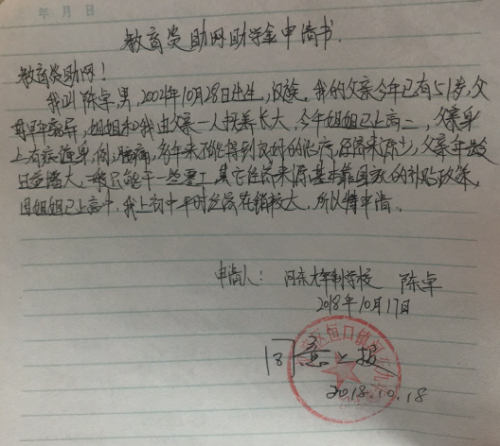 年 月 日
教育资助网助学金申请书
教育资助网！
我叫陈卓，男，2004年10月28日出生，汉族。我的父亲今年已有51岁，父
母早年离异，姐姐和我由父亲一人抚养长大，今年姐姐已上高二，父亲身
上有疾缠身，多年来不能得到及时的治疗，经济来源少，父亲年龄
日益增大，一般只能干一些零工，其它经济来源基本靠国家的补贴政策，
因姐姐已上高中，我上初中，平时经济花销较大，所以特申请。
申请人： 九年制学校 陈卓
2018年10月17日
同意上报
恒口镇
2018.10.18